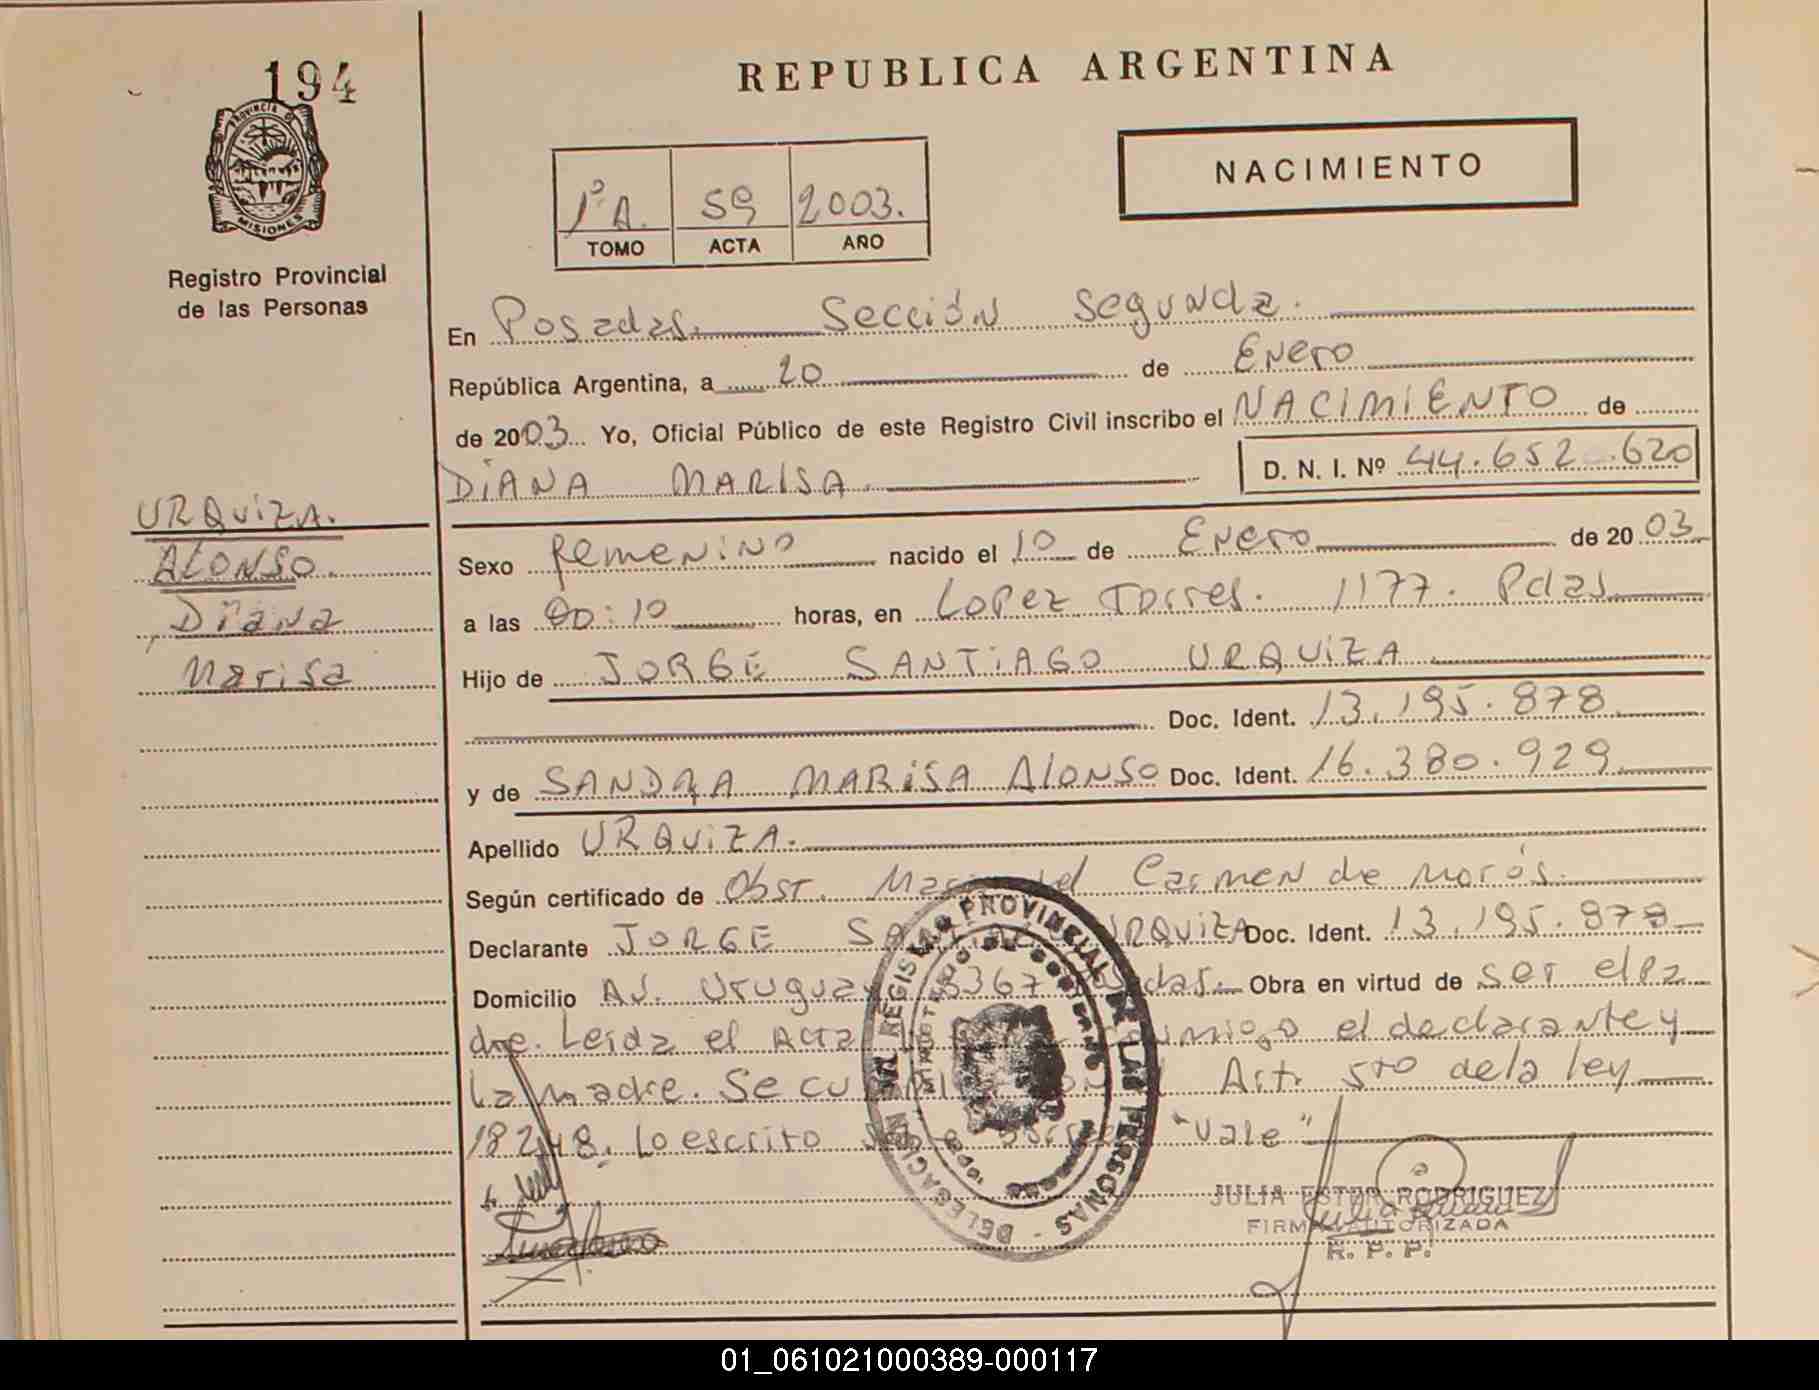 194
PROVINCIA DE
MISIONES
Registro Provincial
de las Personas
REPUBLICA ARGENTINA
NACIMIENTO
1º A. 59 2003.
TOMO ACTA AÑO
En Posadas. Sección Segunda.
República Argentina, a 20 de Enero
de 2003 Yo, Oficial Público de este Registro Civil inscribo el NACIMIENTO de
DIANA MARISA. D. N. I. Nº 44.652.620
URQUIZA.
ALONSO
Diana
Marisa
Sexo femenino nacido el 10 de Enero de 2003
a las 00:10 horas, en Lopez Torres. 1177. Pdas
Hijo de JORGE SANTIAGO URQUIZA
Doc. Ident. 13.195.878
y de SANDRA MARISA ALONSO Doc. Ident. 16.380.929
Apellido URQUIZA.
Según certificado de Obst. Maria del Carmen de Morós.
Declarante JORGE SANTIAGO URQUIZA Doc. Ident. 13.195.878
Domicilio Av. Uruguay 3367 Pdas. Obra en virtud de ser el pa
dre. Leida el Acta conmigo el declarante y
la madre. Se Art. 5to de la ley
18248. Lo escrito "Vale"
DELEGACION DEL REGISTRO PROVINCIAL DE LAS PERSONAS
MINISTERIO DE GOBIERNO
JULIA ESTER RODRIGUEZ
FIRMA AUTORIZADA
R. P. P.
01_061021000389-000117